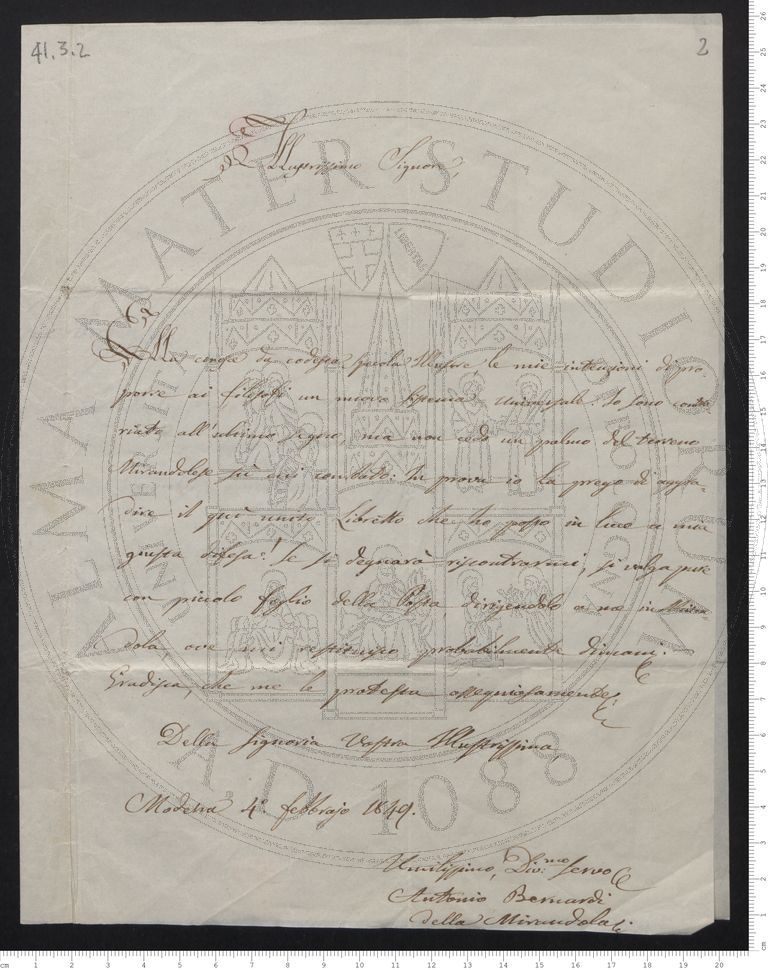 41.3.2
2
Illustrissimo Signore,
da codesta scuola Illustre, le mie intenzioni di pro-
porre ai filosofi un nuovo Sistema Universale. Io sono
all'ultimo segno, ma non cedo un palmo del terreno
Mirandolese più combattuto. In prova io La prego di aggra-
dire il qui unito Libretto che ho posto in luce a mia
giusta difesa. Se si degnarà riscontrarmi, si valga pure
con piccolo foglio della Posta, dirigendolo a me in Miran-
dola, ove mi restituisco probabilmente dimani.
Gradisca, che me le protesta ossequiosamente
Della Signoria Vostra Illustrissima,
Modena 4. febbrajo 1849.
Umilissimo, Div.mo Servo
Antonio Bernardi
della Mirandola
ALMA MATER STUDIORUM
A.D. 1088